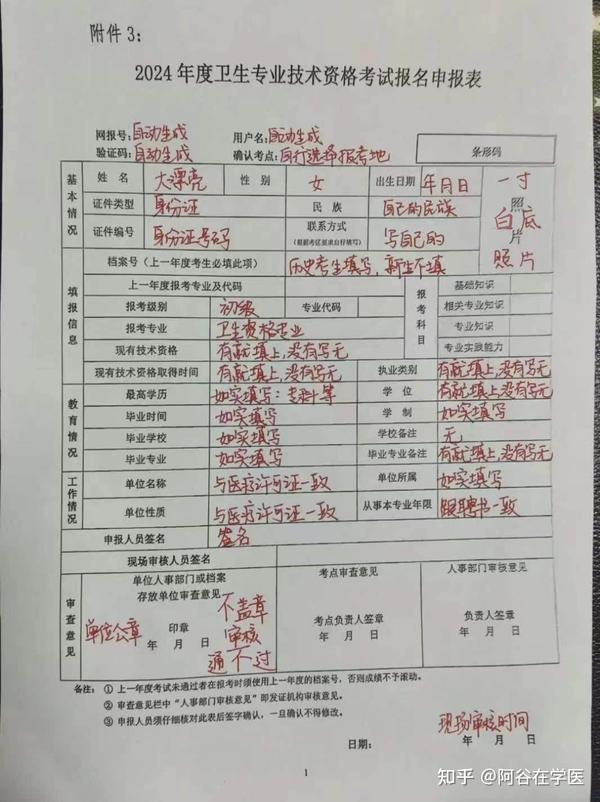 附件3:
2024年度卫生专业技术资格考试报名申报表
网报号:自动生成 用户名:自动生成
验证码:自动生成 确认考点:自行选择报考地 条形码
基本情况 姓名 大漂亮 性别 女 出生日期 年月日 一寸
照
证件类型 身份证 民族 自己的民族 白底
片
证件编号 身份证号码 联系方式 写自己的 照片
(根据考区要求自行填写)
档案号(上一年度考生必填此项) 历史考生填写,新生不填
填报信息 上一年度报考专业及代码 报考科目 基础知识
报考级别 初级 专业代码 相关专业知识
报考专业 卫生资格专业 专业知识
现有技术资格 有就填上,没有写无 专业实践能力
现有技术资格取得时间 有就填上,没有写无 执业类别 有就填上,没有写无
教育情况 最高学历 如实填写:专科等 学位 有就填上,没有写无
毕业时间 如实填写 学制 如实填写
毕业学校 如实填写 学校备注 无
毕业专业 如实填写 毕业专业备注 有就填上,没有写无
工作情况 单位名称 与医疗许可证一致 单位所属 如实填写
单位性质 与医疗许可证一致 从事本专业年限 跟聘书一致
申报人员签名 签名
现场审核人员签名
审查意见 单位人事部门或档案 考点审查意见 人事部门审核意见
存放单位审查意见 不盖章
单位公章 印章 审核 考点负责人签章 负责人签章
年 月 日 通不过 年 月 日 年 月 日
备注: ① 上一年度考试未通过者在报考时须使用上一年度的档案号,否则成绩不予滚动。
② 审查意见栏中“人事部门审核意见”即发证机构审核意见。
③ 申报人员须仔细核对此表后签字确认,一旦确认不得修改。
现场审核时间
日期: 年 月 日
1
知乎 @阿谷在学医